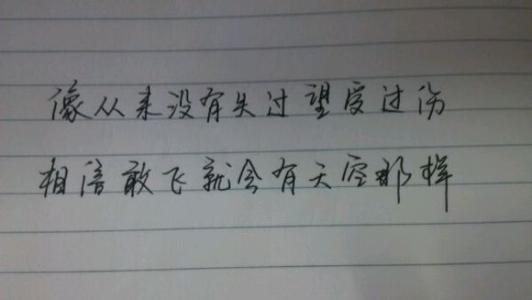 像从来没有失过望受过伤
相信敢飞就会有天空那样